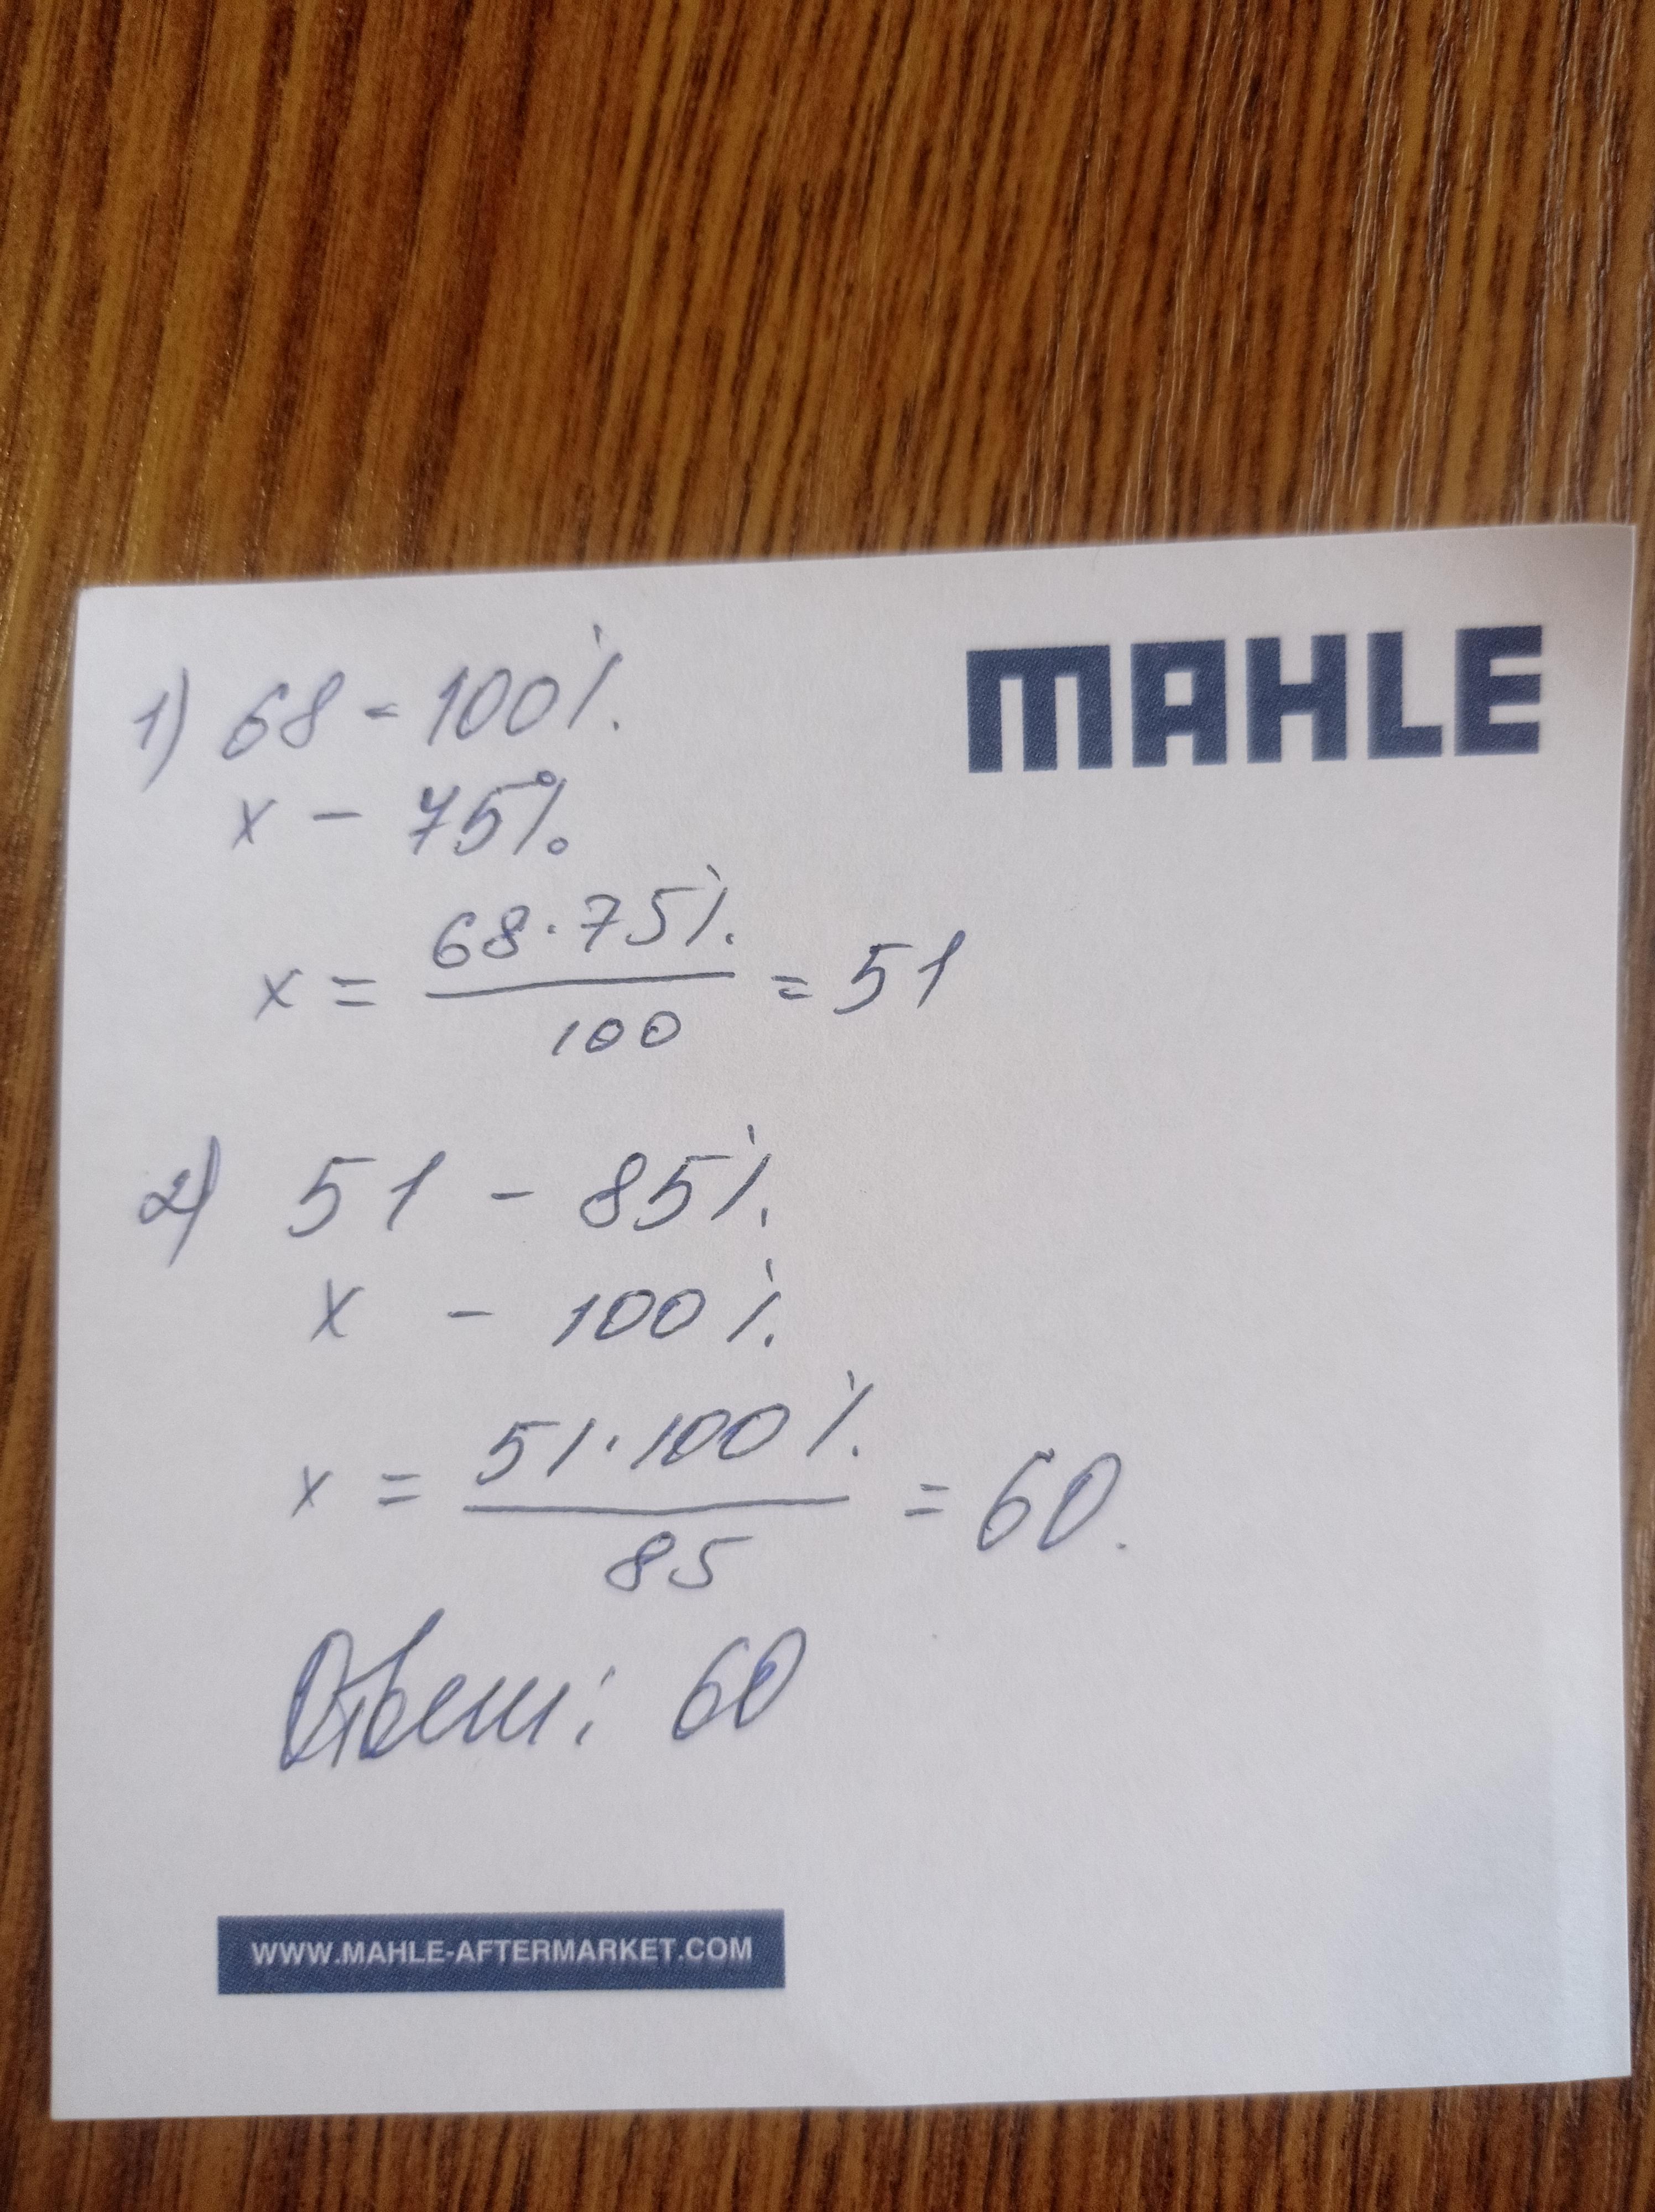 MAHLE
1) 68 - 100%
x - 75%
x = 68·75% / 100 = 51
2) 51 - 85%
x - 100%
x = 51·100% / 85 = 60.
Ответ: 60
WWW.MAHLE-AFTERMARKET.COM